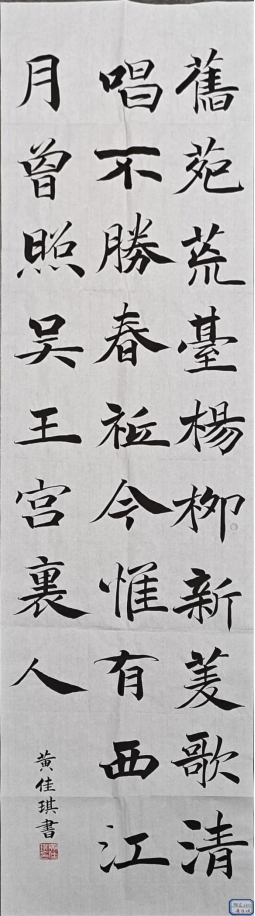 舊苑荒臺楊柳新菱歌清
唱不勝春祗今惟有西江
月曾照吴王宫裏人
黄佳琪書